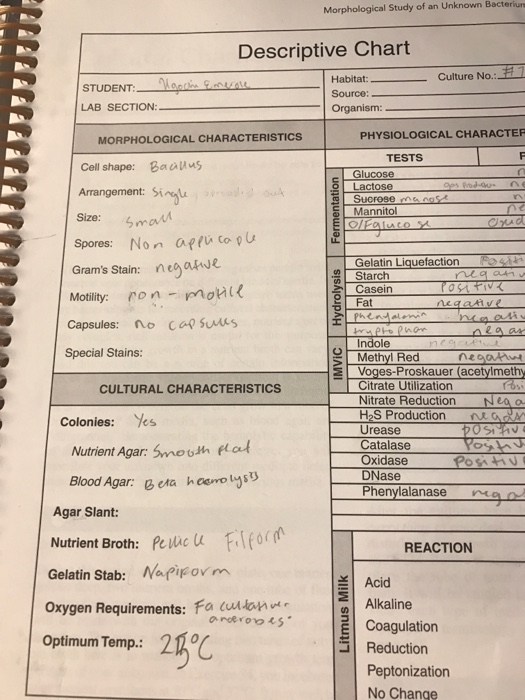 Morphological Study of an Unknown Bacterium
Descriptive Chart
STUDENT:
LAB SECTION:
Habitat:
Culture No.: #7
Source:
Organism:
MORPHOLOGICAL CHARACTERISTICS
Cell shape: Bacillus
Arrangement: Single
Size: small
Spores: Non applicable
Gram's Stain: negative
Motility: non-motile
Capsules: no capsules
Special Stains:
CULTURAL CHARACTERISTICS
Colonies: Yes
Nutrient Agar: Smooth flat
Blood Agar: Beta heamolysis
Agar Slant:
Nutrient Broth: Pellicle Filform
Gelatin Stab: Napiform
Oxygen Requirements: Facultative
anerobes
Optimum Temp.: 25°C
PHYSIOLOGICAL CHARACTER
TESTS
Fermentation
Glucose
Lactose
Sucrose manose
Mannitol
O/F glucose
Hydrolysis
Gelatin Liquefaction
Starch negativ
Casein Positive
Fat negative
negativ
negat
IMViC
Indole
Methyl Red negative
Voges-Proskauer (acetylmethy
Citrate Utilization
Nitrate Reduction Nega
H₂S Production
Urease positive
Catalase Positiv
Oxidase Positiv
DNase
Phenylalanase
Litmus Milk
REACTION
Acid
Alkaline
Coagulation
Reduction
Peptonization
No Change